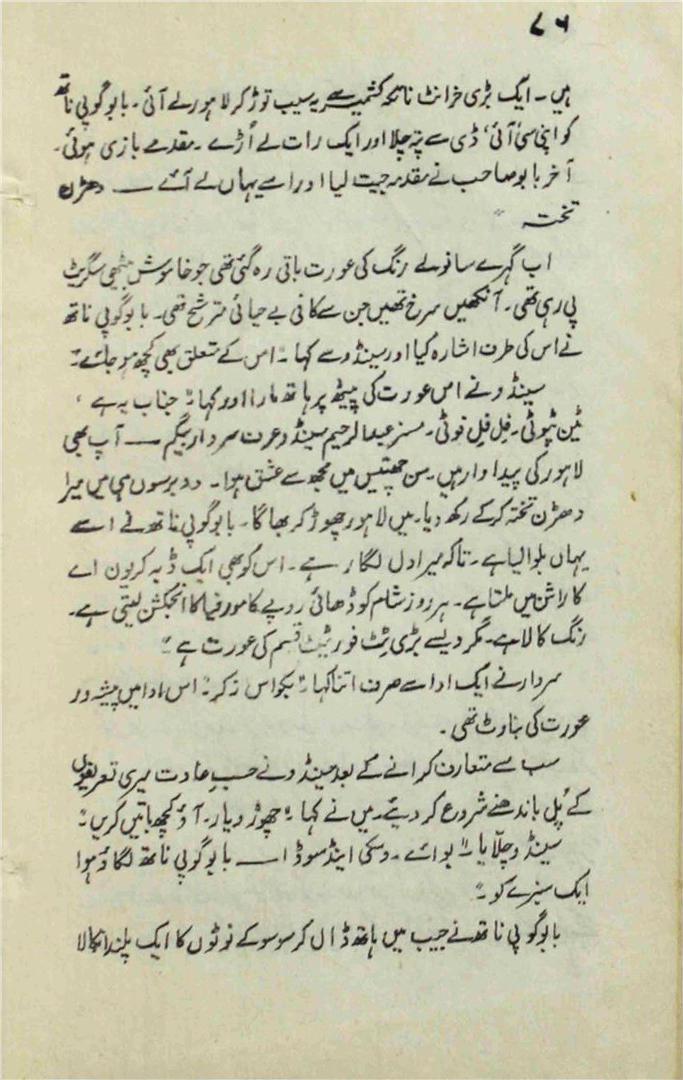 ۷۶
ہیں۔ ایک بڑی خرانٹ نائکہ کشمیر سے یہ سیب توڑ کر لاہور لے آئی۔ بابو گوپی ناتھ
کو اپنی سی آئی ڈی سے پتہ چلا اور ایک رات لے اُڑے۔ مقدمے بازی ہوئی۔
آخر بابو صاحب نے مقدمہ جیت لیا اور اسے یہاں لے آئے — دھڑن
تختہ"
اب گہرے سانولے رنگ کی عورت باقی رہ گئی تھی جو خاموش بیٹھی سگریٹ
پی رہی تھی۔ آنکھیں سرخ تھیں جن سے کافی بے حیائی مترشح تھی۔ بابو گوپی ناتھ
نے اس کی طرف اشارہ کیا اور سینڈو سے کہا "اس کے متعلق بھی کچھ ہو جائے"
سینڈو نے اس عورت کی پیٹھ پر ہاتھ مارا اور کہا "جناب یہ ہے،
ٹین پٹوٹی۔ فِل فِل فوٹی۔ مسز عبدالرحیم سینڈو عرف سردار بیگم — آپ بھی
لاہور کی پیداوار ہیں۔ سن چھتیس میں مجھ سے عشق ہوا۔ دو برسوں ہی میں میرا
دھڑن تختہ کر کے رکھ دیا۔ میں لاہور چھوڑ کر بھاگا۔ بابو گوپی ناتھ نے اسے
یہاں بلوا لیا ہے۔ تاکہ میرا دل لگا رہے۔ اس کو بھی ایک ڈبہ کریون اے
کا راشن میں ملتا ہے۔ ہر روز شام کو ڈھائی روپے کا مورفیا کا انجکشن لیتی ہے۔
رنگ کالا ہے۔ مگر ویسے بڑی ٹِٹ فور ٹیٹ قسم کی عورت ہے"
سردار نے ایک ادا سے صرف اتنا کہا "بکواس نہ کر" اس ادا میں پیشہ ور
عورت کی بناوٹ تھی۔
سب سے متعارف کرانے کے بعد سینڈو نے حسبِ عادت میری تعریفوں
کے پُل باندھنے شروع کر دیئے۔ میں نے کہا "چھوڑو یار۔ آؤ کچھ باتیں کریں"
سینڈو چلّایا "بوائے۔ وسکی اینڈ سوڈا — بابو گوپی ناتھ لگاؤ ہوا
ایک سبزے کو"
بابو گوپی ناتھ نے جیب میں ہاتھ ڈال کر سو سو کے نوٹوں کا ایک پلندا نکالا